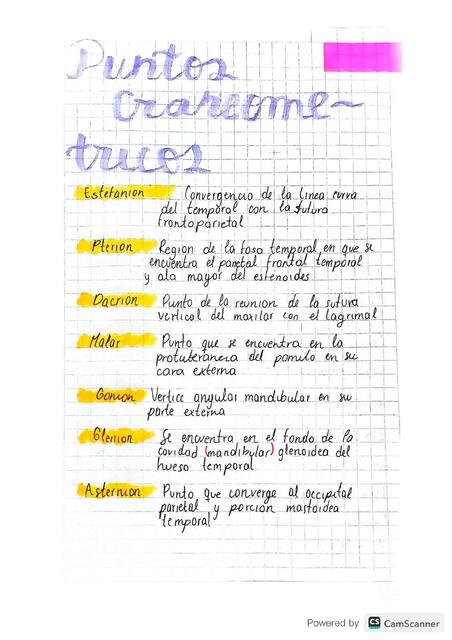 Puntos
Craneome~
tricos
Estefanion Convergencia de la linea curva
del temporal con la sutura
frontoparietal
Pterion Region de la fosa temporal en que se
encuentra el parietal frontal temporal
y ala mayor del esfenoides
Dacrion Punto de la reunion de la sutura
vertical del maxilar con el lagrimal
Malar Punto que se encuentra en la
protuberancia del pomulo en su
cara externa
Gonion Vertice angular mandibular en su
parte externa
Glenion Se encuentra en el fondo de la
cavidad (mandibular) glenoidea del
hueso temporal
Asternion Punto que converge al occipital
parietal y porcion mastoidea
temporal
Powered by CS CamScanner